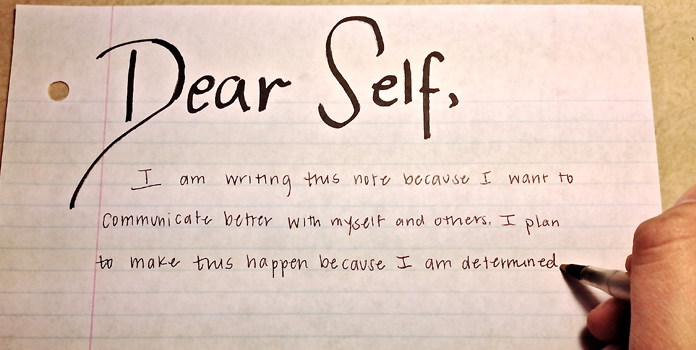 Dear Self,
I am writing this note because I want to
communicate better with myself and others. I plan
to make this happen because I am determined